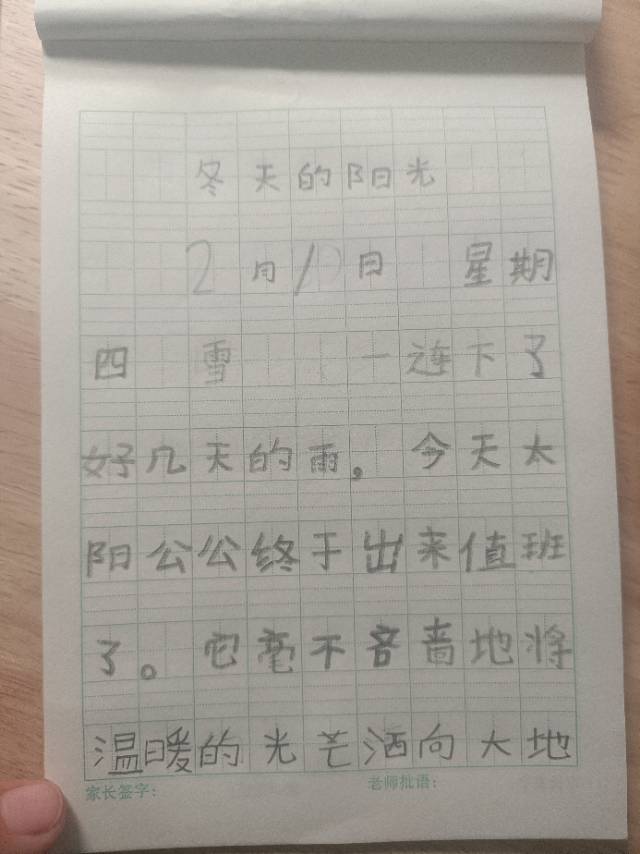 冬天的阳光
2月10日 星期
四 雪 一连下了
好几天的雨。今天太
阳公公终于出来值班
了。它毫不吝啬地将
温暖的光芒洒向大地
家长签字: 老师批语: